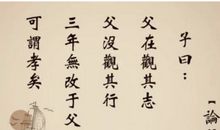 子曰：
父在觀其志
父沒觀其行
三年無改于父
可謂孝矣
【論